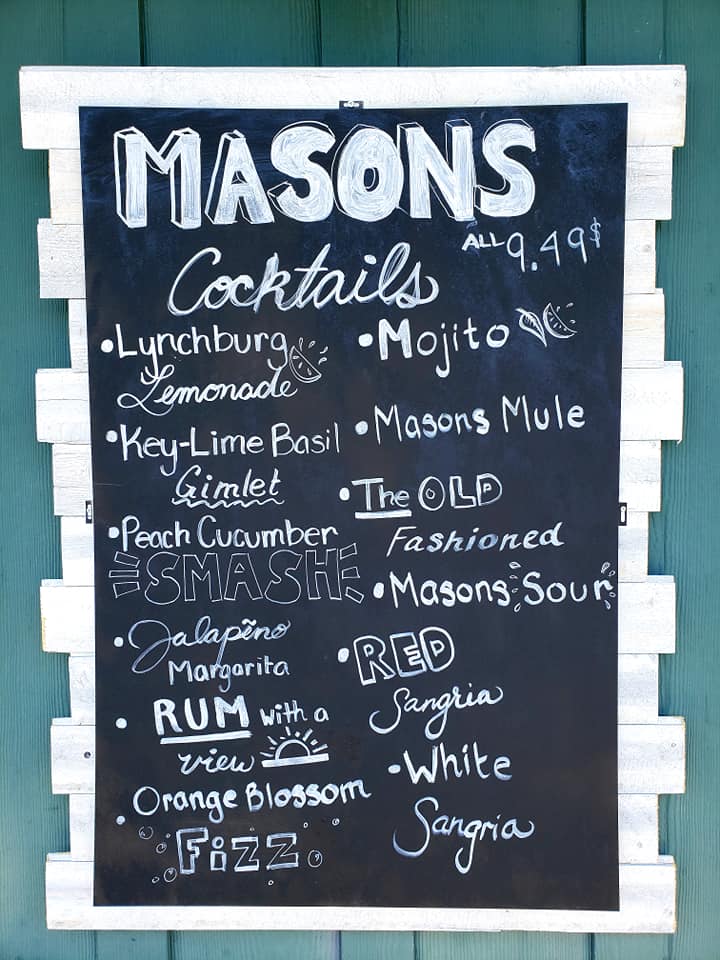 MASONS
ALL 9.49$
Cocktails
• Lynchburg
Lemonade
• Key-Lime Basil
Gimlet
• Peach Cucumber
SMASH
• Jalapẽno
Margarita
• RUM with a
view
• Orange Blossom
Fizz
• Mojito
• Masons Mule
• The OLD
Fashioned
• Masons Sour
• RED
Sangria
• White
Sangria